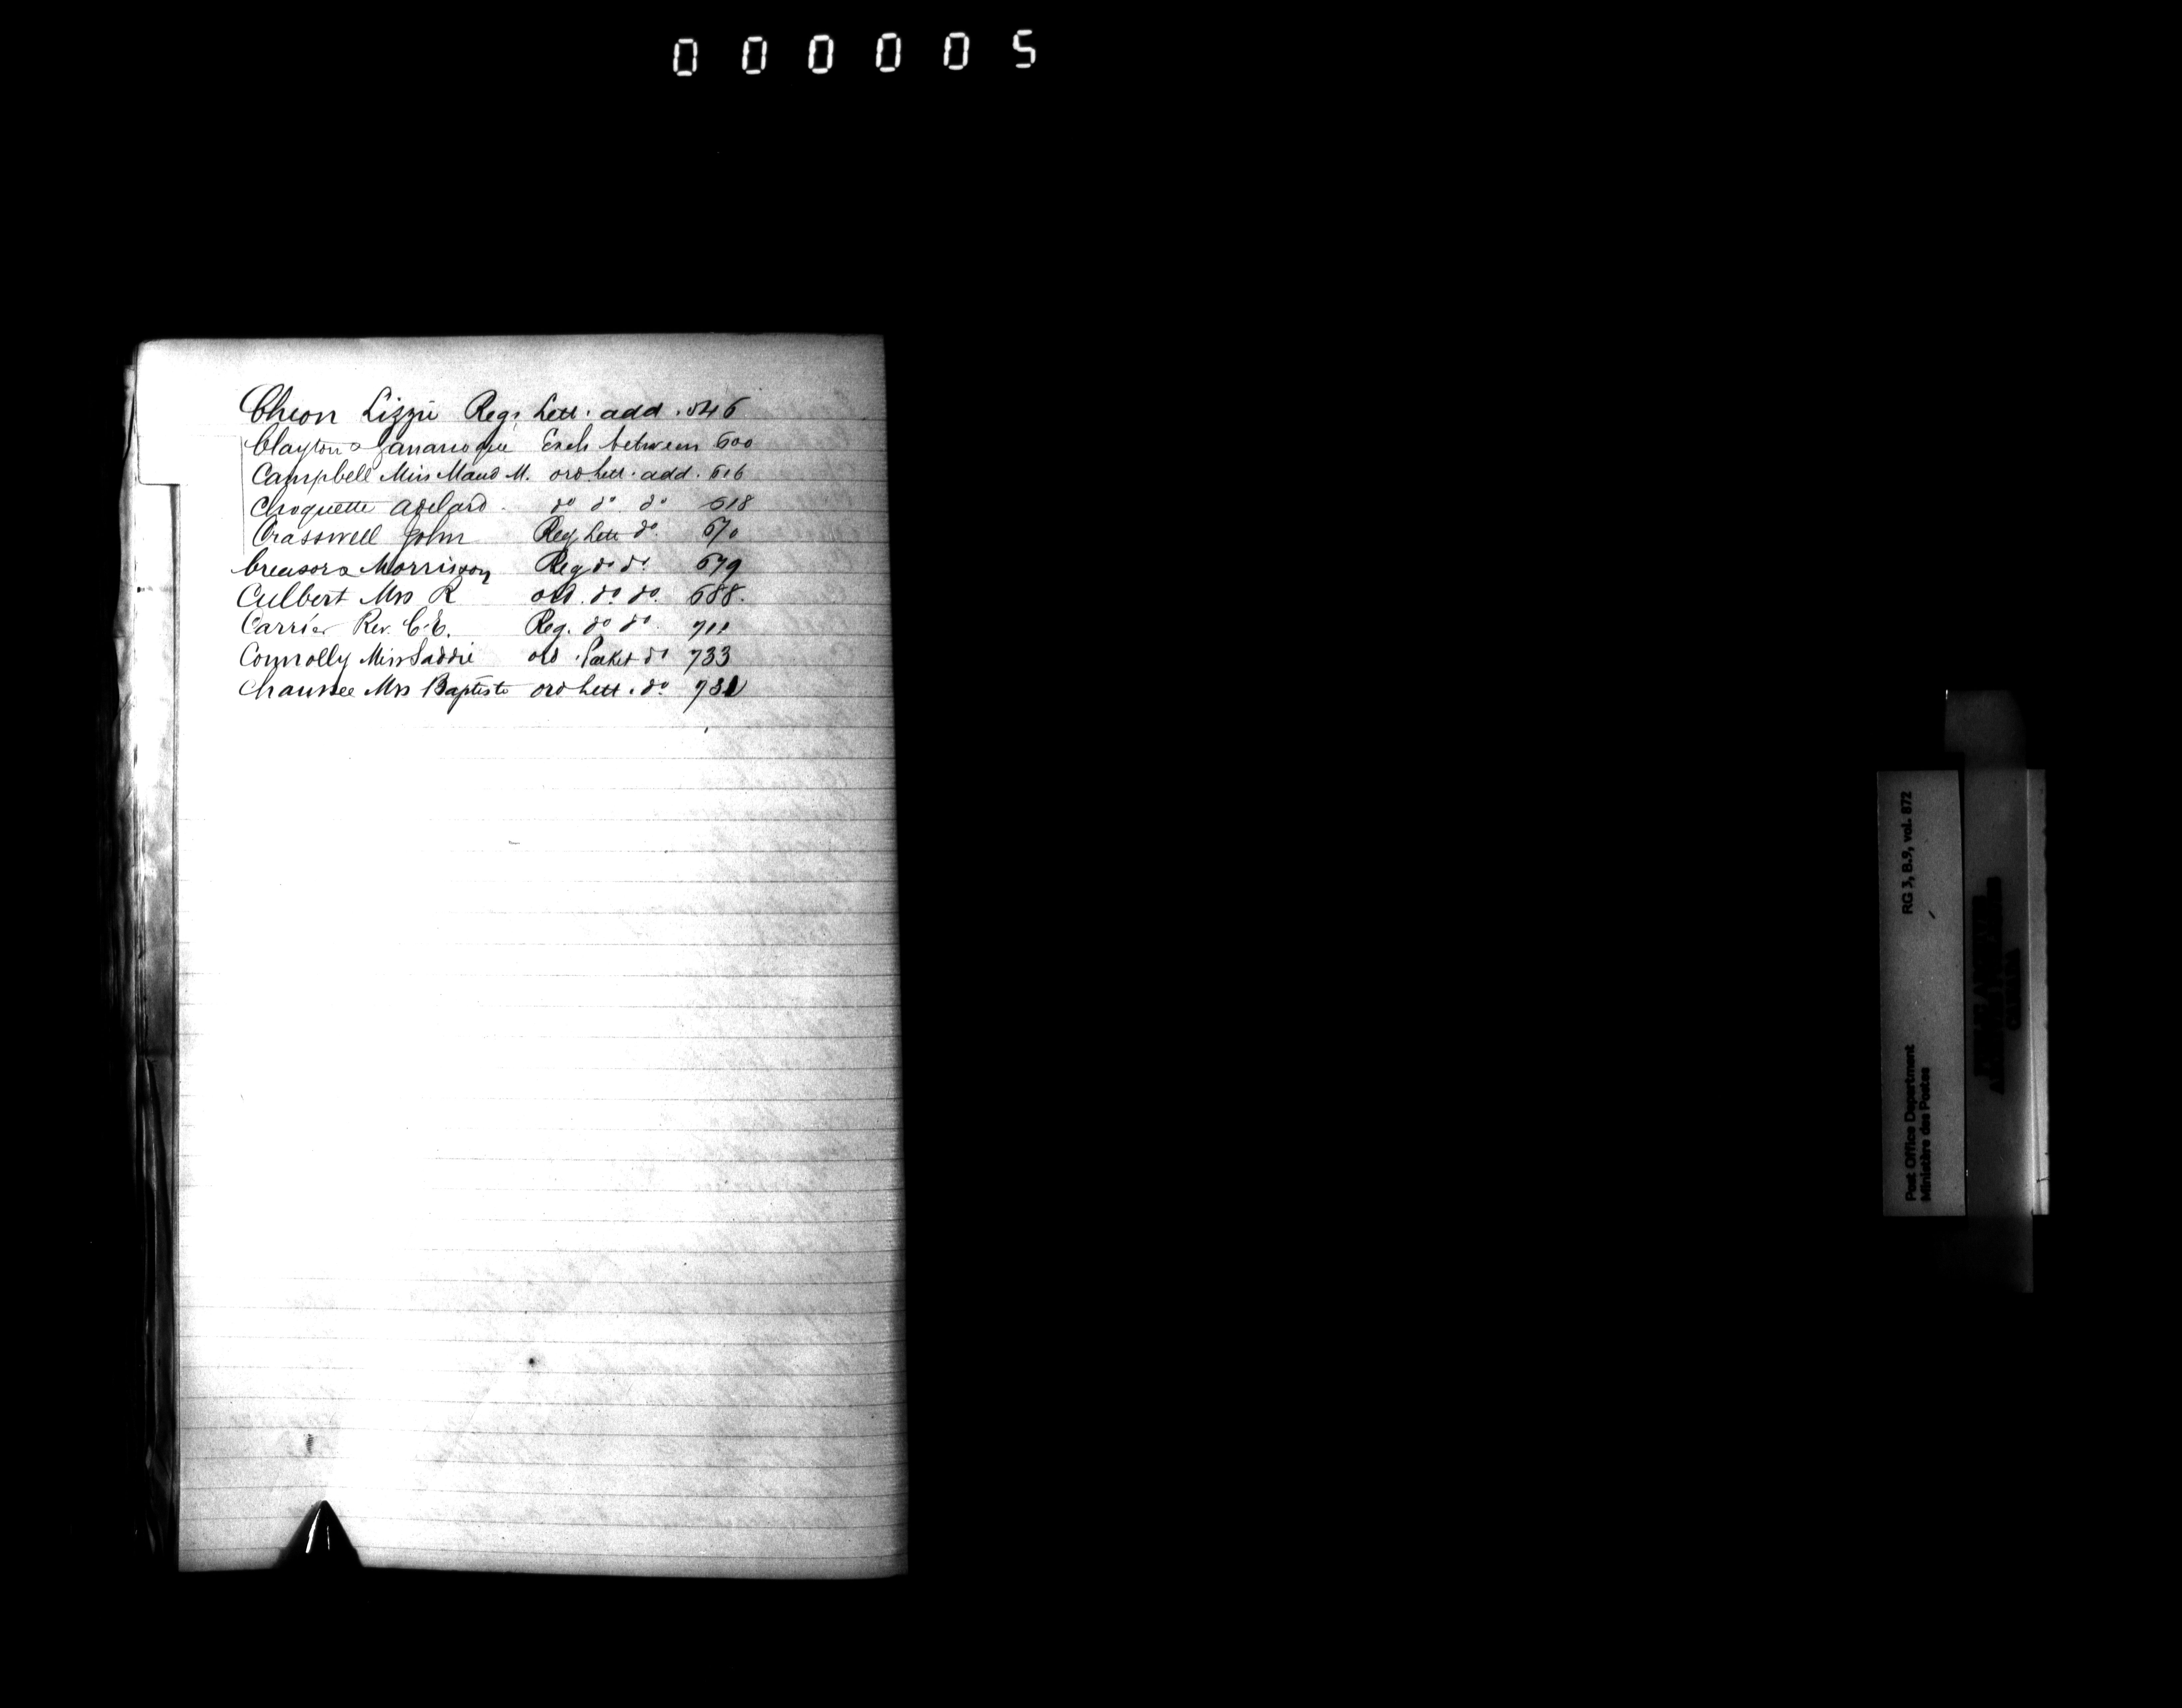 000005
Cheon Lizzie Reg. Lett. add. 546
Clayton & Gananoque Exch between 600
Campbell Miss Maud M. ord Lett. add. 616
Choquette Adelard do do do 618
Crasswell John Reg Lett do. 670
Creasor & Morrison Reg do do. 679
Culbert Mrs R ord. do do. 688.
Carrier Rev. C.E. Reg. do do. 711
Connolly Miss Saddie ord. Packet do 733
Chaussee Mrs Baptiste ord Lett. do
RG 3, B.9, vol. 872
Post Office Department
Ministère des Postes